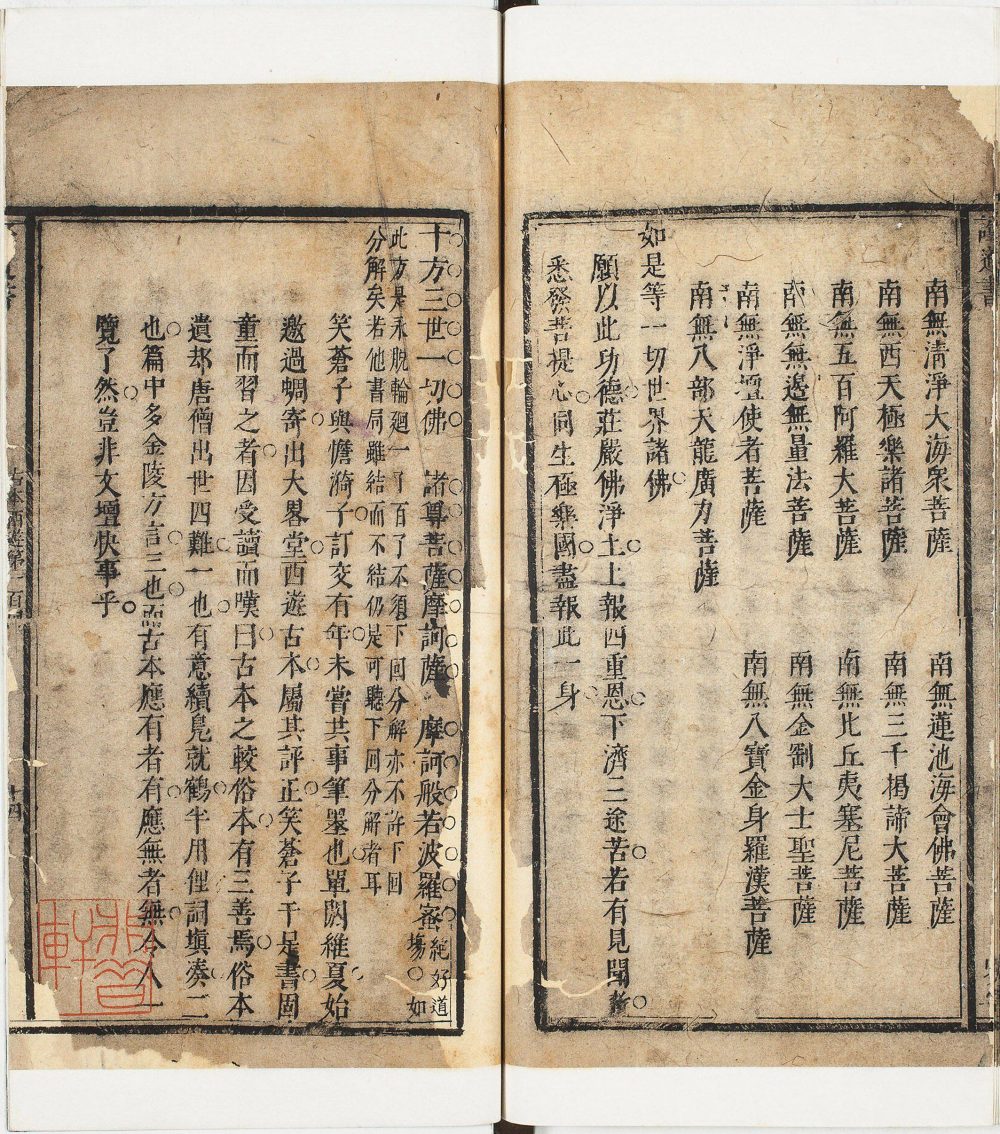 南無清淨大海衆菩薩　南無蓮池海會佛菩薩
南無西天極樂諸菩薩　南無三千揭諦大菩薩
南無五百阿羅大菩薩　南無比丘夷塞尼菩薩
南無無邊無量法菩薩　南無金剛大士聖菩薩
南無淨壇使者菩薩　南無八寶金身羅漢菩薩
南無八部天龍廣力菩薩
如是等一切世界諸佛
願以此功德莊嚴佛淨土上報四重恩下濟三途苦若有見聞者
悉發菩提心同生極樂國盡報此一身
十方三世一切佛　諸尊菩薩摩訶薩　摩訶般若波羅蜜
絕好道
場如
此方是永脫輪廻一了百了不須下回分解亦不許下回
分解矣若他書局雖結而不結仍是可聽下回分解者耳
笑蒼子與憺漪子訂交有年未嘗共事筆墨也單閼維夏始
邀過蜩寄出大畧堂西遊古本屬其評正笑蒼子于是書固
童而習之者因受讀而嘆曰古本之較俗本有三善焉俗本
遺却唐僧出世四難一也有意續鳧就鶴半用俚詞塡湊二
也篇中多金陵方言三也而古本應有者有應無者無令人一
覽了然豈非文壇快事乎
古本西遊第一百
十四